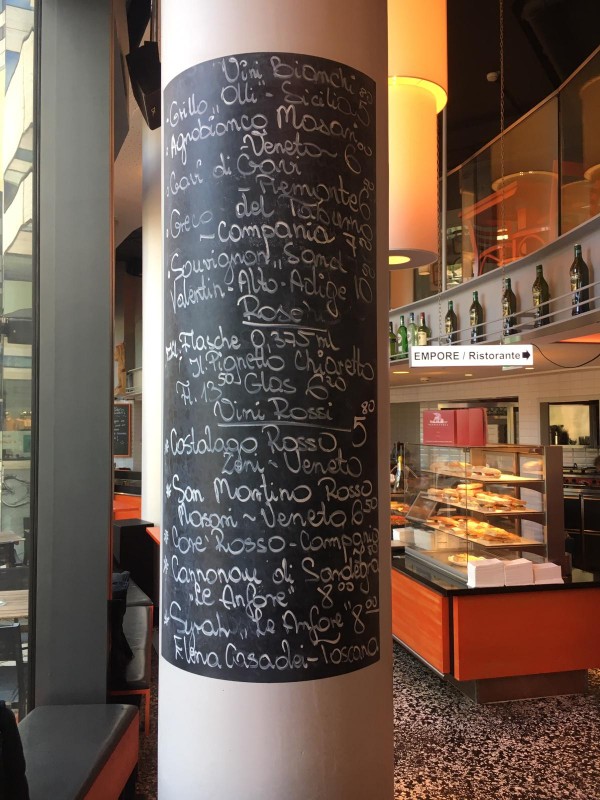 Vini Bianchi
• Grillo „Olli" - Sicilia 5 80
• Agrobianco Masari
Veneto 6
• Gavi di Gavi
Piemonte 6
• Greco del Taburno
- Campania 7
• Souvignon „Sand
Valentin - Alto - Adige 10
Rosé
Kl. Flasche 0,375 ml
Il Pignetto Chiaretto
Fl. 13 50 Glas 6 20
Vini Rossi
* Costalago Rosso 5 80
Zeni - Veneto
* San Martino Rosso
Masari - Veneto 6 50
* Core Rosso - Campania
* Cannonau di Sandegna
„Le Anfore" 8 00
* Syrah „Le Anfore" 8 00
Elena Casadei - Toscana
EMPORE / Ristorante